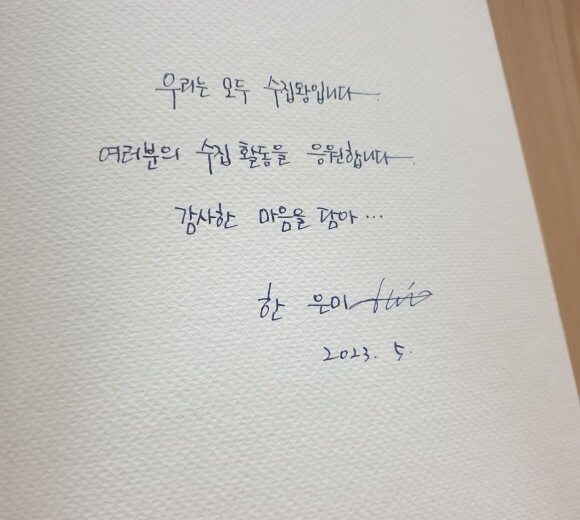 우리는 모두 수집왕입니다.
여러분의 수집 활동을 응원합니다.
감사한 마음을 담아…
한 은미
2023. 5.